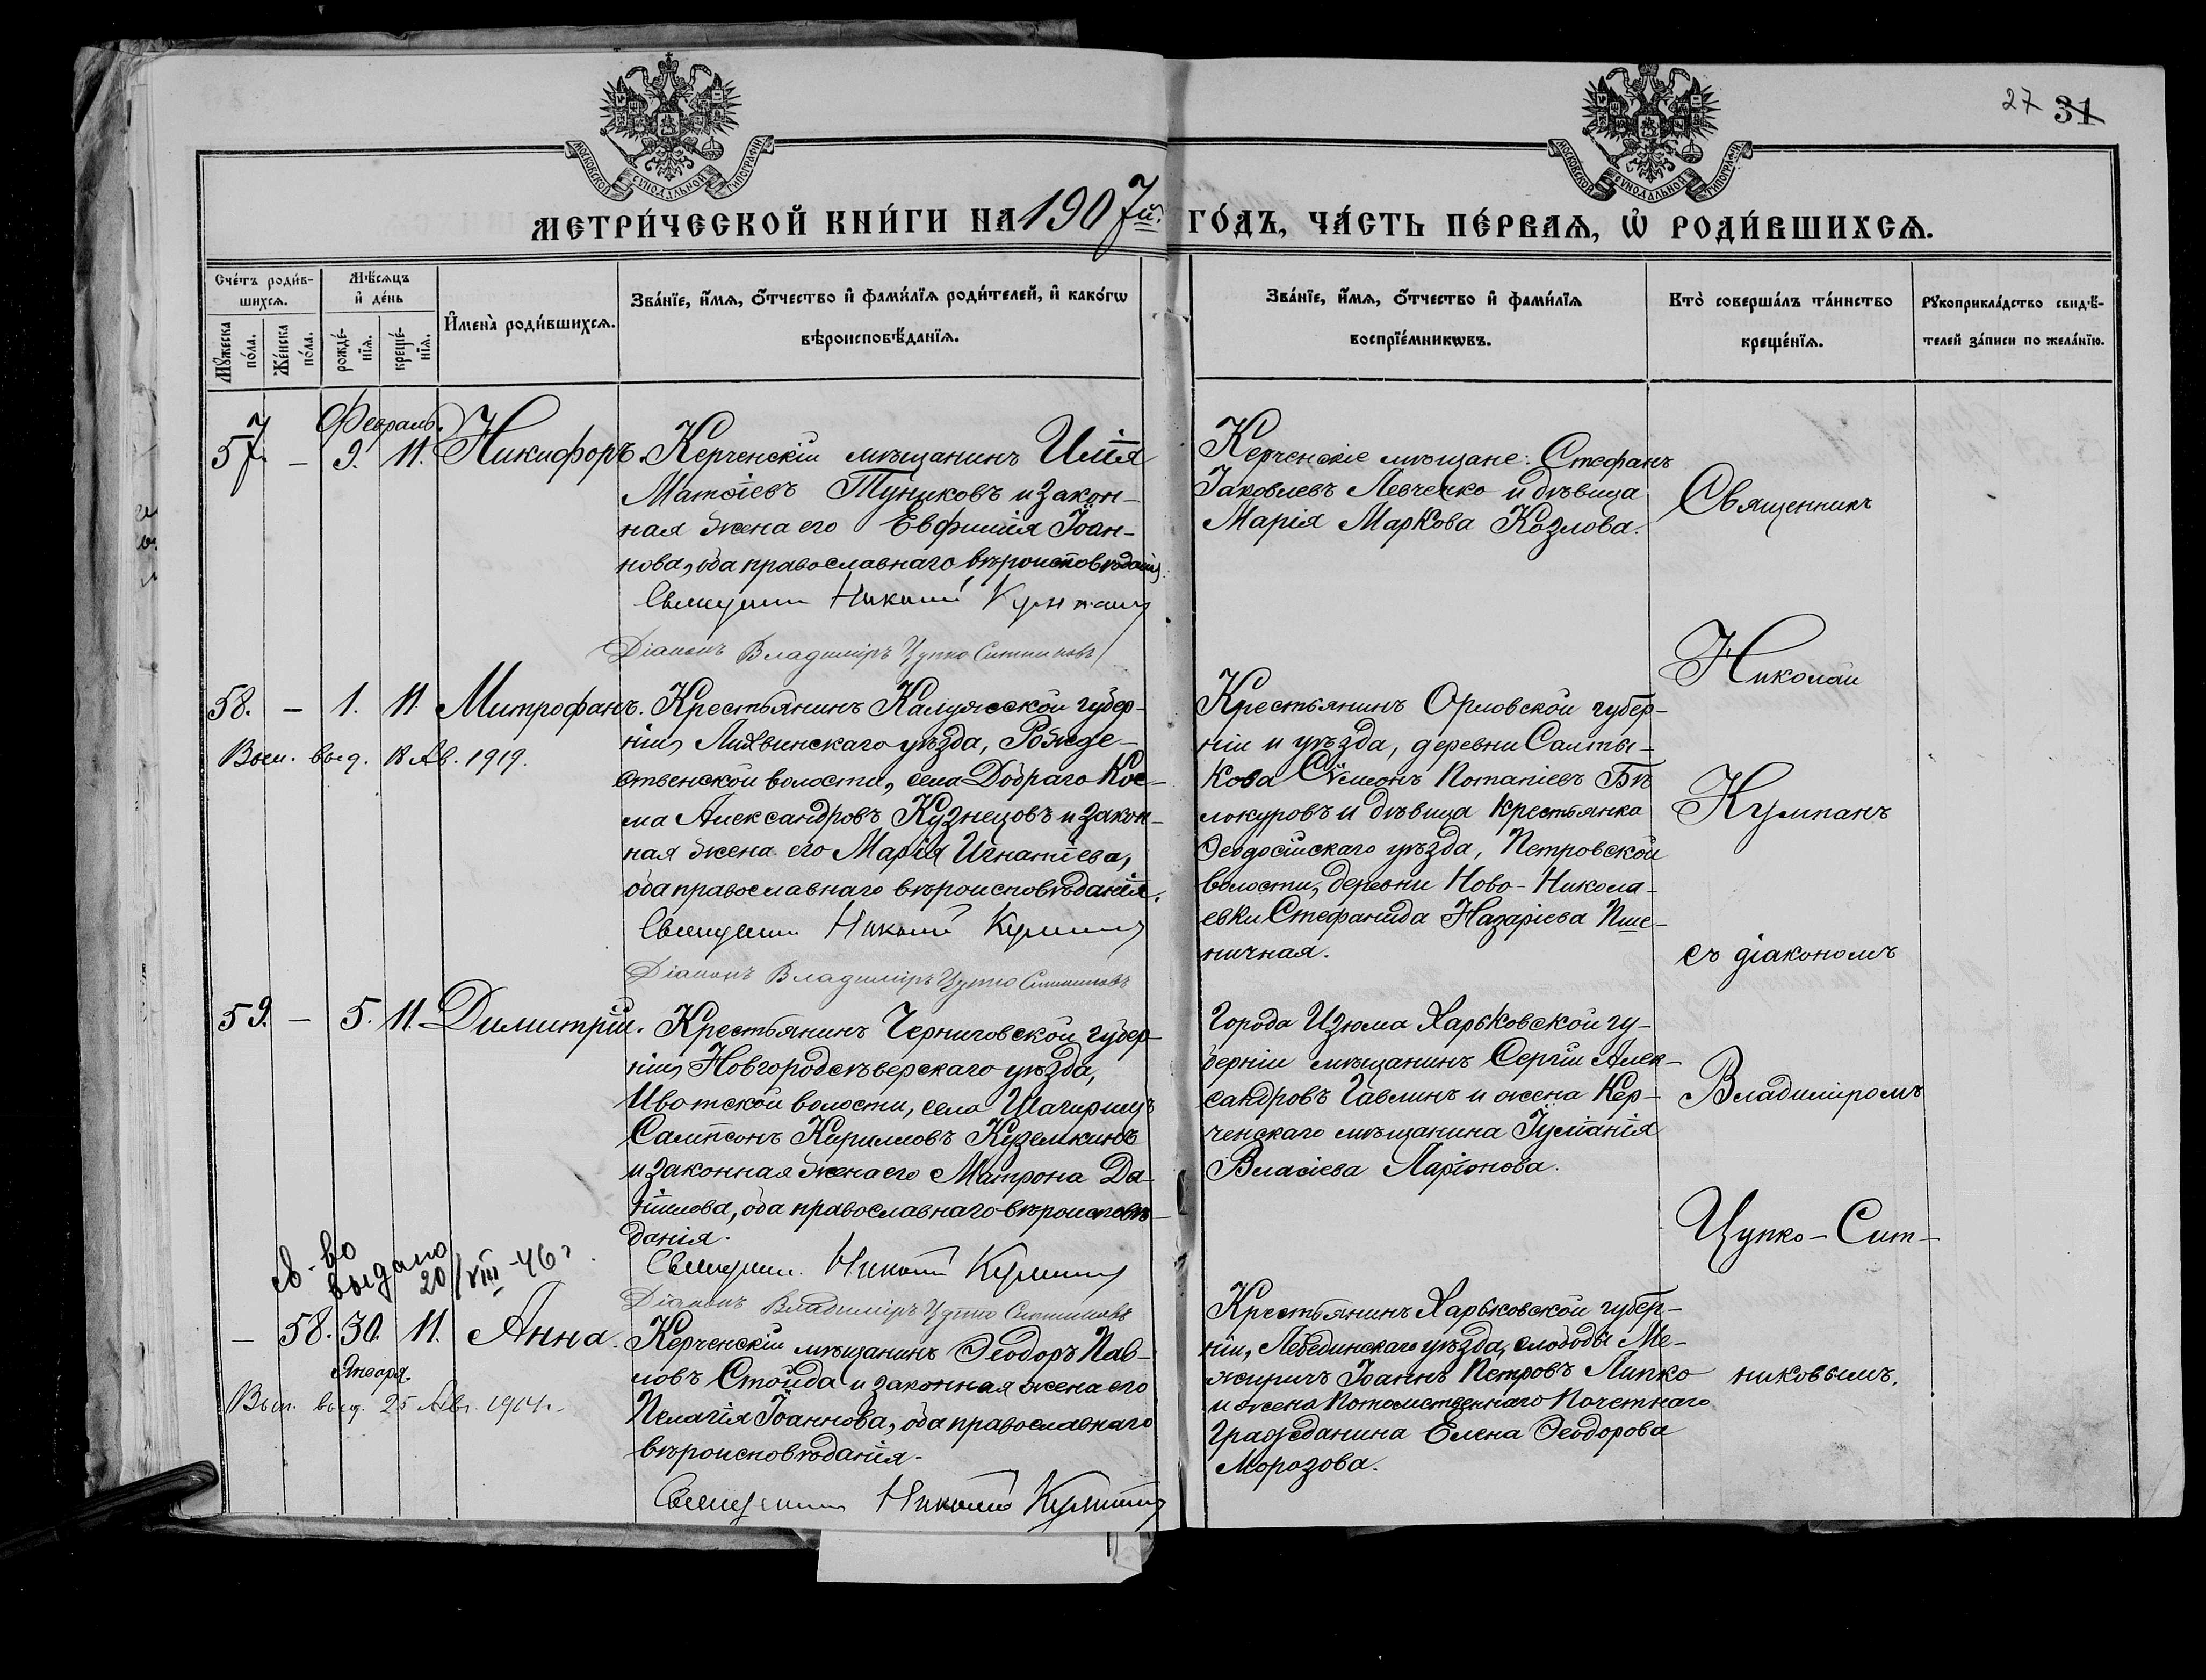 27 31
МОСКОВСКОЙ СѴНОДАЛЬНОЙ ТИПОГРАФІИ
МОСКОВСКОЙ СѴНОДАЛЬНОЙ ТИПОГРАФІИ
МЕТРИ́ЧЕСКОЙ КНИ́ГИ НА 1907й. ГО́ДЪ, ЧА́СТЬ ПЕ́РВАѦ, Ѡ҆ РОДИ́ВШИХСѦ.
Сче́тъ роди́в-
шихсѧ.
Мꙋ́жеска по́ла.
Же́нска по́ла.
Мѣ́сѧцъ
и҆ де́нь
рожде́-
нїѧ.
креще́-
нїѧ.
И҆мена̀ роди́вшихсѧ.
Зва́нїе, и҆́мѧ, ѻ҆́тчество и҆ фами́лїѧ роди́телей, и҆ како́гѡ
вѣроисповѣ́данїѧ.
Зва́нїе, и҆́мѧ, ѻ҆́тчество и҆ фами́лїѧ
воспрїе́мникѡвъ.
Кто̀ соверша́лъ та́инство
креще́нїѧ.
Рꙋкоприкла́дство свидѣ́-
телей за́писи по жела́нїю.
Февраль.
57. – 9. 11. Никифоръ.
Керченскій мѣщанинъ Илія
Матѳіевъ Туниковъ и закон-
ная жена его Евфимія Іоан-
нова, оба православнаго вѣроисповѣданія.
Священникъ Николай Кумпанъ
Діаконъ Владиміръ Цупко Ситниковъ
Керченскіе мѣщане: Стефанъ
Іаковлевъ Левченко и дѣвица
Марія Маркова Козлова.
Священникъ
Николай
Кумпанъ
съ діакономъ
Владиміромъ
Цупко-Сит-
никовымъ.
58. – 1. 11. Митрофанъ.
Вып. выд. 18 Ав. 1919.
Крестьянинъ Калужской губер-
ніи, Лихвинскаго уѣзда, Рожде-
ственской волости, села Добраго Кос-
ма Александровъ Кузнецовъ и закон-
ная жена его Марія Игнатіева,
оба православнаго вѣроисповѣданія.
Священникъ Николай Кумпанъ
Діаконъ Владиміръ Цупко Ситниковъ
Крестьянинъ Орловской губер-
ніи и уѣзда, деревни Салты-
кова Сѵмеонъ Потапіевъ Бѣ
локуровъ и дѣвица крестьянка
Ѳеодосійскаго уѣзда, Петровской
волости, деревни Ново-Никола-
евки Стефанида Назаріева Пше-
ничная.
59. – 5. 11. Димитрій.
Крестьянинъ Черниговской губер-
ніи, Новгородсѣверскаго уѣзда,
Ивотской волости, села
Сампсонъ Кирилловъ Куземкинъ
и законная жена его Матрона Да-
ніилова, оба православнаго вѣроисповѣ-
данія.
Священникъ Николай Кумпанъ
Діаконъ Владиміръ Цупко Ситниковъ
Города Изюма Харьковской гу-
берніи мѣщанинъ Сергій Алек-
сандровъ Гавлинъ и жена Кер-
ченскаго мѣщанина Іуліанія
Власіева Ларіонова.
св-во
выдано
20/VIII-46г.
– 58. 30. 11. Анна.
Января.
Вып. выд. 25 Авг. 1914г.
Керченскій мѣщанинъ Ѳеодоръ Пав-
ловъ Стойда и законная жена его
Пелагія Іоаннова, оба православнаго
вѣроисповѣданія.
Священникъ Николай Кумпанъ
Крестьянинъ Харьковской губер-
ніи, Лебединскаго уѣзда, слободы Ме-
жиричъ Іоаннъ Петровъ Липко
и жена Потомственнаго Почетнаго
Гражданина Елена Ѳеодорова
Морозова.